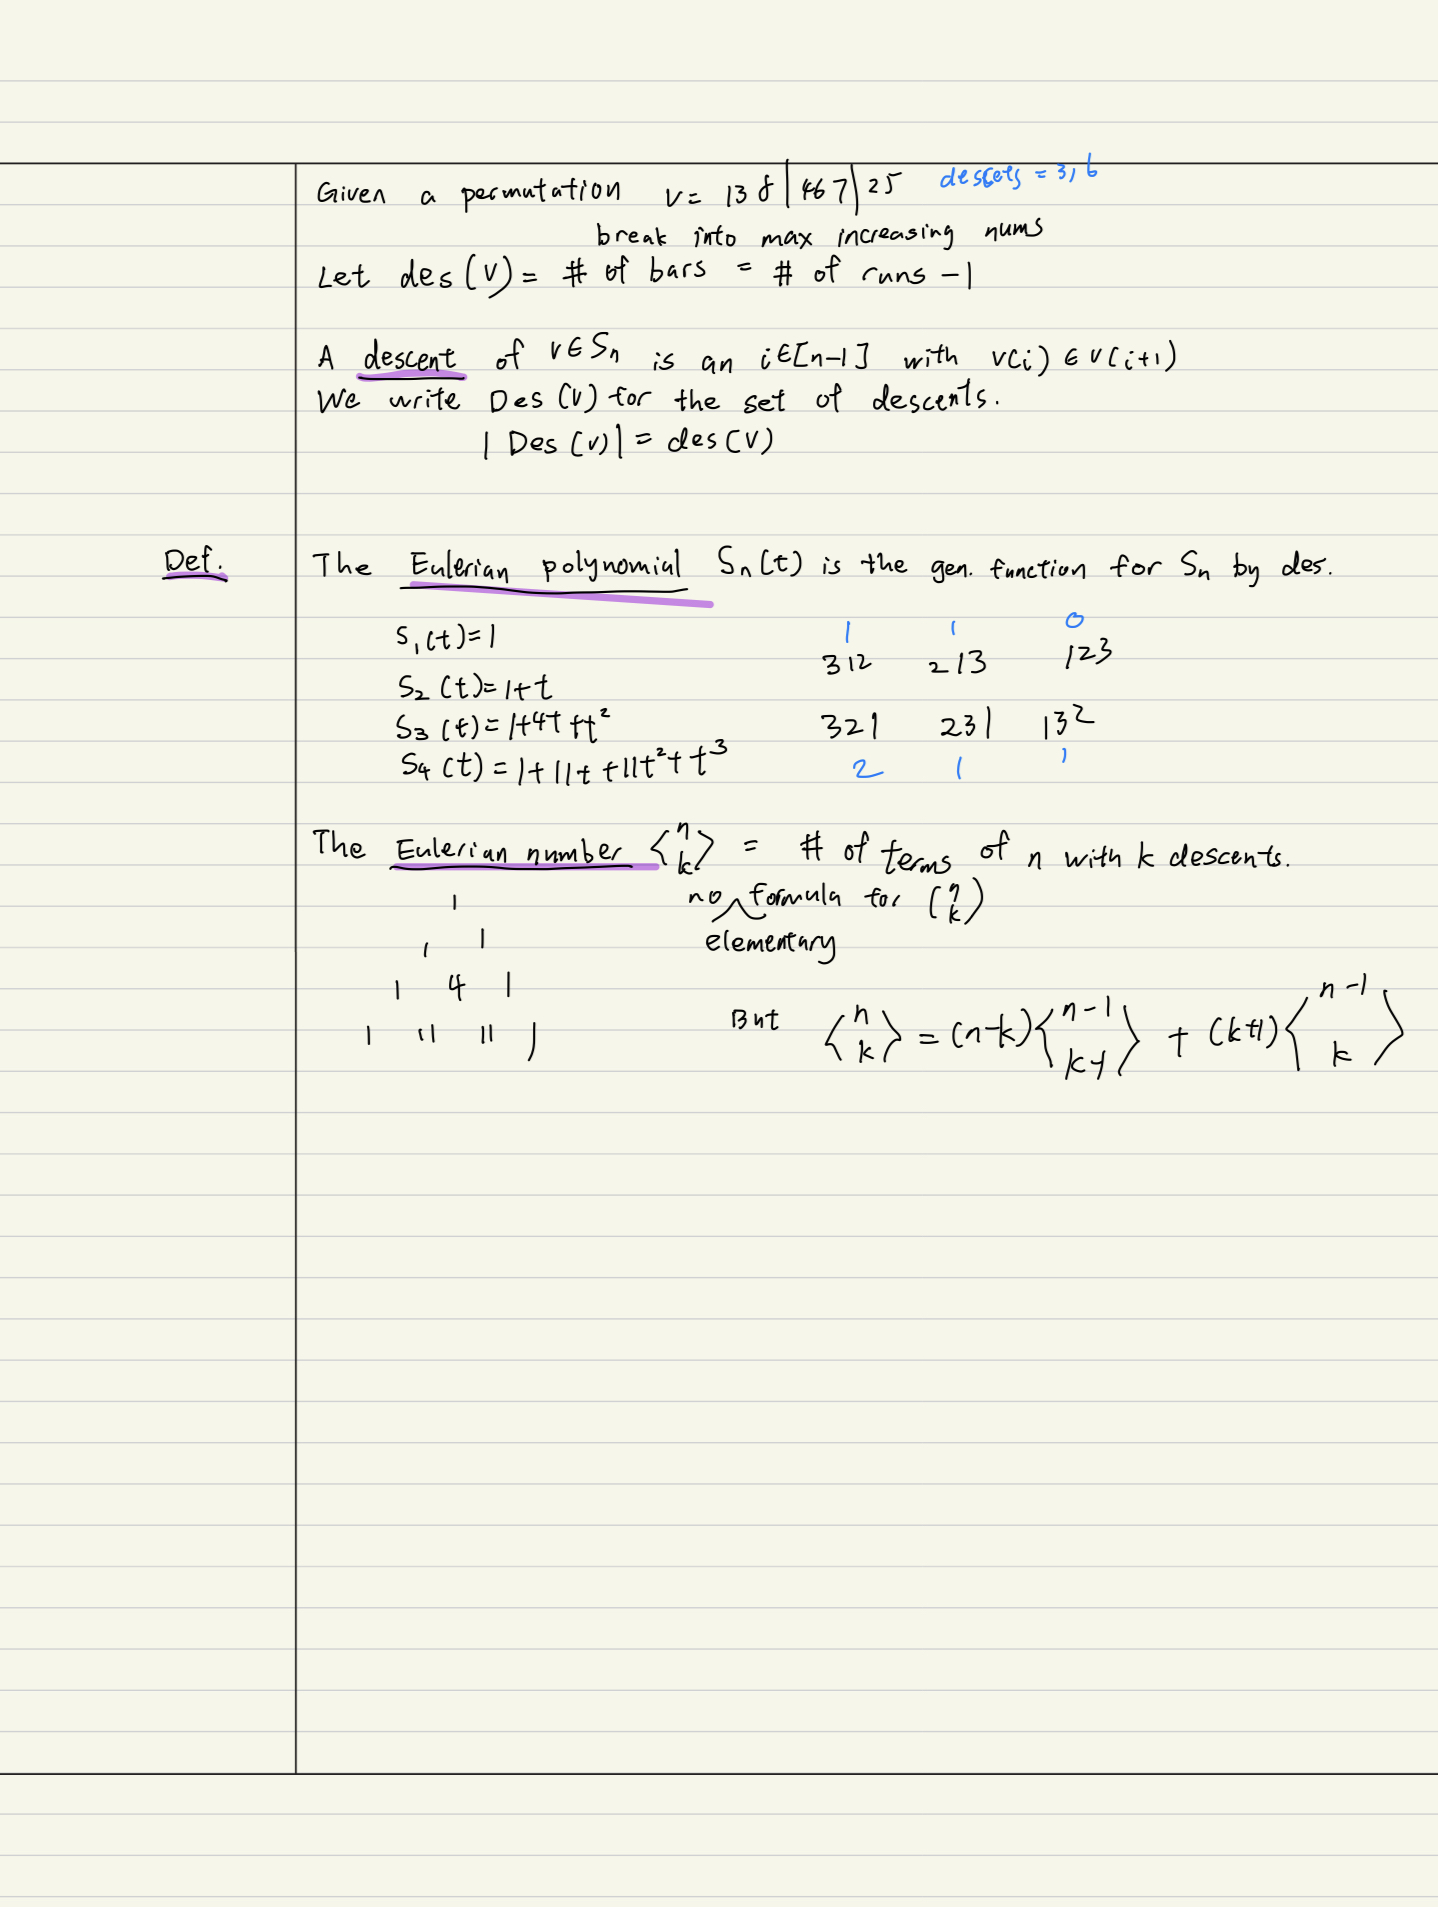 Given a permutation v = 138|467|25 descets = 3,6
break into max increasing nums
Let des(v) = # of bars = # of runs - 1
A descent of v∈Sn is an i∈[n-1] with v(i) ∈ v(i+1)
We write Des(v) for the set of descents.
|Des(v)| = des(v)
Def. The Eulerian polynomial Sn(t) is the gen. function for Sn by des.
1 1 0
S₁(t)=1 312 213 123
S₂(t)=1+t
S₃(t)=1+4t+t² 321 231 132
S₄(t)=1+11t+11t²+t³ 2 1 1
The Eulerian number ⟨n k⟩ = # of terms of n with k descents.
1 no formula for (n k)
1 1 elementary
1 4 1
1 11 11 1 But ⟨n k⟩ = (n-k)⟨n-1 k-1⟩ + (k+1)⟨n-1 k⟩